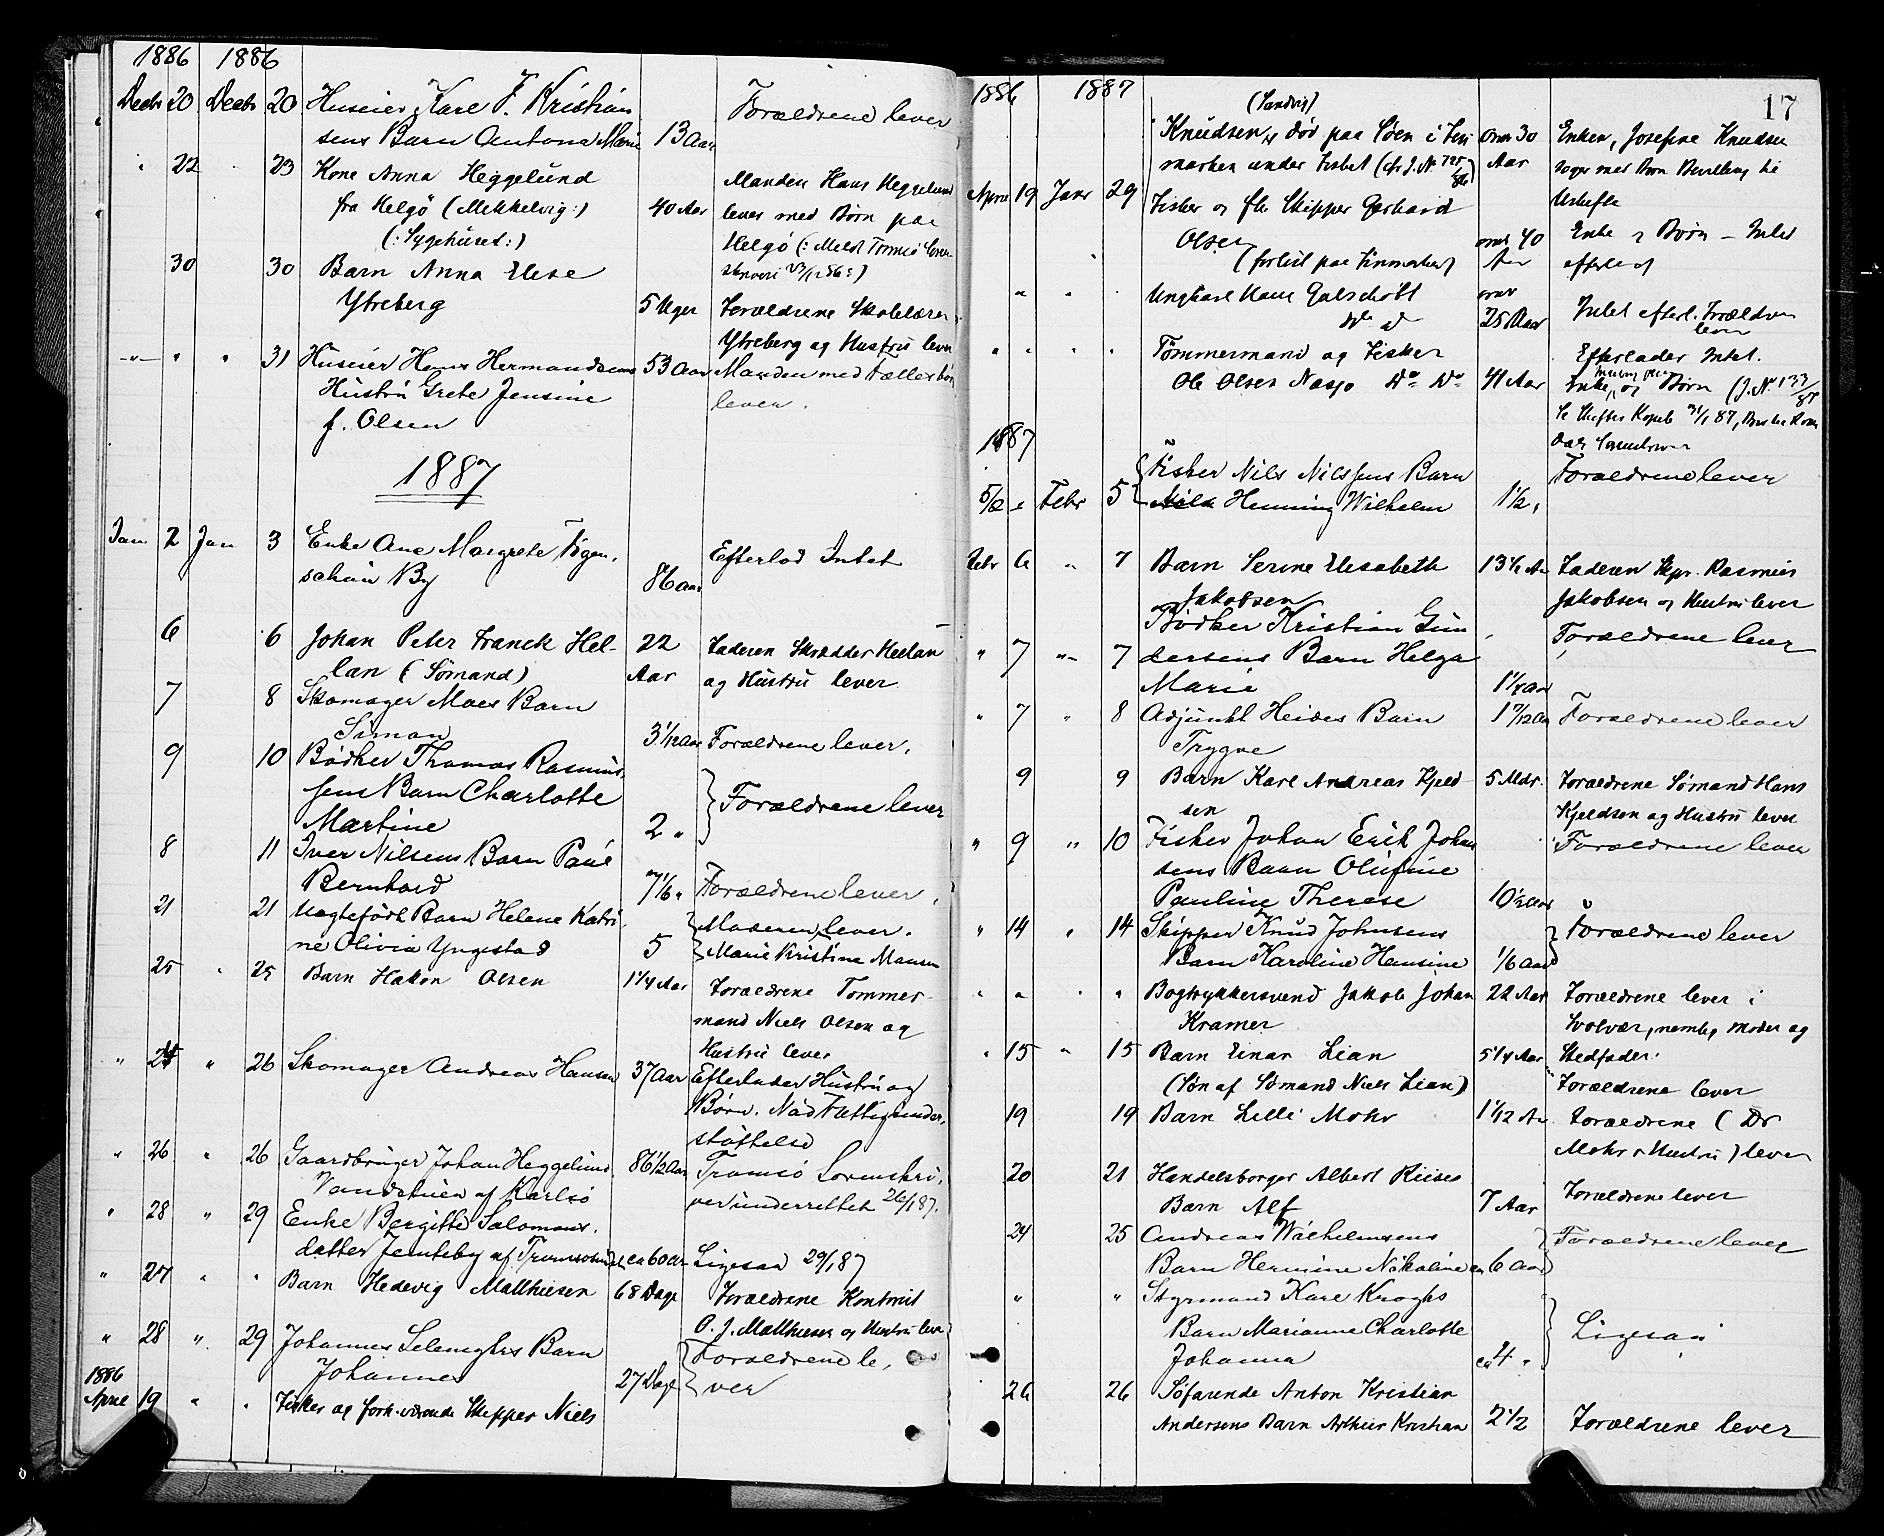 1886 1886
Decbr 20 Decbr 20 Huseier Karl F. Kristian
sens Barn Antona Marie 13 Aar Forældrene lever
" 22 " 23 Kone Anna Heggelund
fra Helgö (Mikkelvig:) 40 Aar Manden Hans Heggelund
(: Sygehuset:) lever med Børn paa
Helgö (: Meldt Tromsö Soren-
skriveri 23/12 86:)
30 30 Barn Anna Elise
Ytreberg 5 Uger Forældrene Skolelærer
Ytreberg og Hustru lever
" " " 31 Huseier Hans Hermandsens 53 Aar Manden med Fællesbörn
Hustru Grete Jensine lever.
f. Olsen
1887
Jan 2 Jan 3 Enke Ane Margrete Figen-
schau By 86 aar Efterlod Intet
6 6 Johan Peter Franck Hel- 22 Faderen Skrædder Hellan
lan (Sömand) Aar og Hustru lever.
7 8 Skomager Moes Barn
Simon 3 1/12 Aar Forældrene lever.
9 10 Bödker Thomas Rasmus-
sens Barn Charlotte Forældrene lever
Martine 2 "
8 11 Iver Nilsens Barn Paul
Bernhard 7 1/6 " Forældrene lever.
21 21 Uægtefödt Barn Helene Katri- Moderen lever.
ne Olivia Yngestad 5 Marie Kristine Mausen
25 " 25 Barn Hakon Olsen 1 1/4 Aar Forældrene Tømmer-
mand Niels Olsen og
Hustru lever
" 25 " 26 Skomager Andreas Hansen 37 Aar Efterlader Hustru og
Börn. Nöd Fattigunder-
stöttelse
" 26 " 26 Gaardbruger Johan Heggelund 86 1/2 Aar Tromsö Sorenskri-
Vandstuen af Karlsö ver underrettet 26/1 87.
" 28 " 29 Enke Bergitte Salomons-
datter Jemteby af Tromsösund ca 60 aar Ligesaa 29/1 87
" 27 " " Barn Hedevig Matthiesen 68 Dage Forældrene Kontorist
O. J. Matthiesen og Hustru lever
" 28 " 29 Johannes Selenghs Barn Forældrene le-
Johannes 27 Dage ver
1886
April 19 " " Fisker og forh. værende Skipper Niels
17
1886 1887
(Sandvig)
Knudsen, död paa Söen i Fin omtr 30 Enken, Josefine Knudsen
marken under Fisket (cfr J. No 725/86) Aar
April 19 Janr 29 Fisker og fh Skipper Gerhard
Olsen omtr 40 Enke & Börn – Intet
" (forlist paa Finmarken) Aar efterlod
" " " Ungkarl Hans Galschött omtr
Do do 25 Aar Intet efterl. Forældrene
lever
" " " " Tömmermand og Fisker Efterlader Intet.
Ole Olsen Næsjo Do Do 41 Aar Enke og Börn (J. No 133/87
Se Skifte Kopib 31/1 87,
1887
5/2 " Febr 5 Fisker Nils Nilssens Barn Forældrene lever
Henning Wilhelm 1 1/2 "
Febr 6 " 7 Barn Serine Elisabeth 13 1/2 Aar Faderen Skpr. Rasmus
Jakobsen Jakobsen og Hustru lever
" 7 " 7 Bödker Kristian Gun Forældrene lever
dersens Barn Helga
Marie 1 1/4 aar
" 7 " 8 Adjunkt Heides Barn 1 7/12 Aar Forældrene lever
Trygve
9 9 Barn Karl Andreas Kjeld- 5 Mdr. Forældrene Sømand Hans
sen Kjeldsen og Hustru lever
" 9 " 10 Fisker Johan Erik Johan Forældrene lever
sens Barn Olufine
Pauline Therese 10 1/2 aar "
" 14 " 14 Skipper Knud Johnsens Forældrene lever
Barn Karoline Hansine 1/6 Aar
" " " " Bogtrykkersvend Jakob Johan 22 Aar Forældrene lever i
Kramer Svolvær, nemlig Moder og
" 15 " 15 Barn Einar Lian 5 1/4 Aar Stedfader.
(Sön af Sömand Niels Lian) Forældrene lever
19 19 Barn Lilli Mohr 1 1/12 Aar Forældrene (Dr
Mohr & Hustru) lever
20 21 Handelsborger Albert Riises
Barn Alf 7 Aar Forældrene lever
24 25 Andreas Wilhelmsens Forældrene lever
Barn Hermine Nikoline ca 6 aar
" " Styrmand Karl Kroghs
Barn Marianne Charlotte Ligesaa
Johanna ca 4 "
26 26 Söfarende Anton Kristian
Andersens Barn Arthur Kristian 2 1/2 Forældrene lever